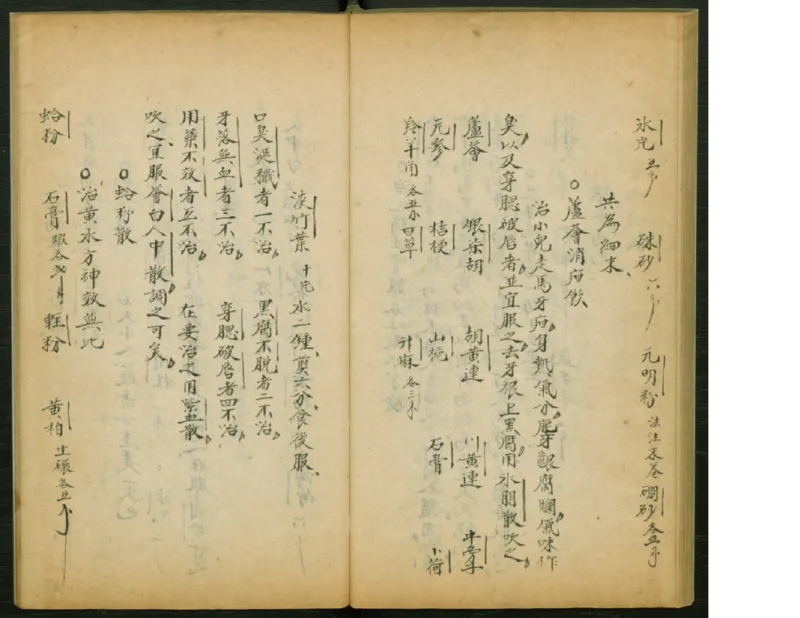 氷片 五分 硃砂 六分 元明粉 硼砂 各五分
共為細末
○蘆薈消疳飲
治小兒走馬牙疳身熱氣分麄牙齦腐爛氣味作
臭以及穿腮破唇者並宜服之去牙根上黑腐用氷硼散吹之
蘆薈 銀柴胡 胡黃連 川黃連 牛旁子
元參 桔梗 山梔 石羔 卜荷
羚羊角 各五分 甘草 升麻 各三分
淡竹葉 十片 水二鍾煎六分食後服
口臭涎穢者一不治 黑腐不脫者二不治
牙落無血者三不治 穿腮破唇者四不治
用藥不效者五不治 在要治之用 散
吹之宜服薈白人中散調之可矣
○蛤粉散
○治黃水方神效無比
蛤粉 石膏 煅各 輕粉 黃柏 生碾各五分